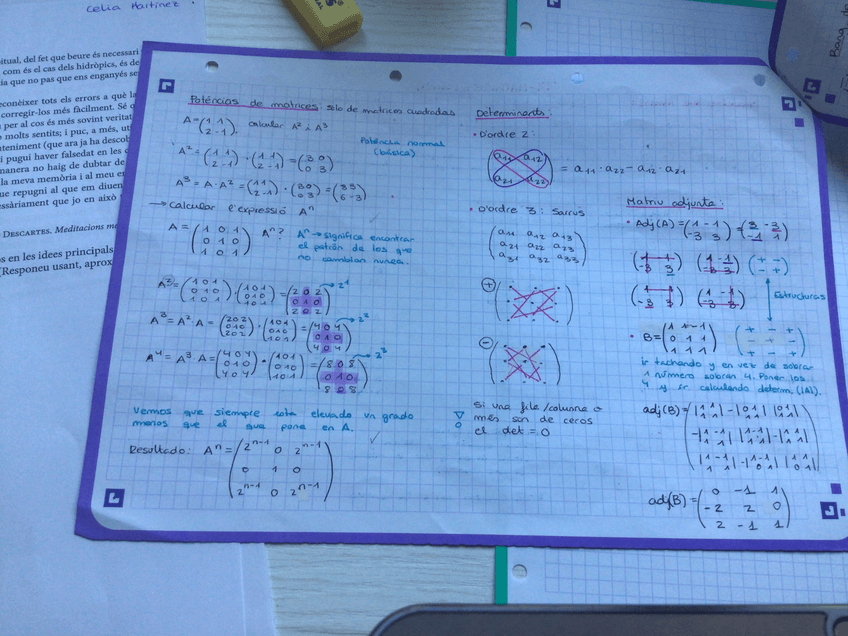 Celia Martínez
itual, del fet que beure és necessari
com és el cas dels hidròpics, és de
ia que no pas que ens enganyés se
econèixer tots els errors a què la
corregir-los més fàcilment. Sé
per al cos és més sovint veritat
molts sentits; i puc, a més, ut
nteniment (que ara ja ha descob
i pugui haver falsedat en les
manera no haig de dubtar de
la meva memòria i al meu en
que repugni al que em diuen
ssàriament que jo en això
DESCARTES. Meditacions m
s en les idees principals
(Responeu usant, aprox
Poténcias de matrices: solo de matrices cuadradas
A=(1 1
2 -1). calcular A² i A³
A²=(1 1
2 -1)·(1 1
2 -1)=(3 0
0 3)
Poténcia normal
(básica)
A³= A·A²=(1 1
2 -1)·(3 0
0 3)=(3 3
6 -3)
→ Calcular l'expressió Aⁿ
A=(1 0 1
0 1 0
1 0 1) Aⁿ?
Aⁿ→significa encontrar
el patrón de los que
no cambian nunca.
A²=(1 0 1
0 1 0
1 0 1)·(1 0 1
0 1 0
1 0 1)=(2 0 2
0 1 0
2 0 2) → 2¹
A³=A²·A=(2 0 2
0 1 0
2 0 2)·(1 0 1
0 1 0
1 0 1)=(4 0 4
0 1 0
4 0 4) → 2²
A⁴=A³·A=(4 0 4
0 1 0
4 0 4)·(1 0 1
0 1 0
1 0 1)=(8 0 8
0 1 0
8 0 8) → 2³
Vemos que siempre está elevado un grado
menos que el que pone en A.
Resultado: Aⁿ=(2ⁿ⁻¹ 0 2ⁿ⁻¹
0 1 0
2ⁿ⁻¹ 0 2ⁿ⁻¹)
Determinants:
• D'ordre 2:
(a11 a12
a21 a22) = a11·a22 - a12·a21
• D'ordre 3: Sarrus
(a11 a12 a13
a21 a22 a23
a31 a32 a33)
+
-
Si una fila/columna o
més son de ceros
el det=0
Matriu adjunta:
• Adj(A)=(1 -1
-3 3)=(3 -3
-1 1)
(+ -
- +)
Estructuras
• B=(1 1 -1
0 1 1
1 1 1)
(+ - +
- + -
+ - +)
ir tachando y en vez de sobrar
1 número sobran 4. Poner los
4 y ir calculando determ. (|A|).
adj(B)=
adj(B)=(0 -1 1
-2 2 0
2 -1 1)